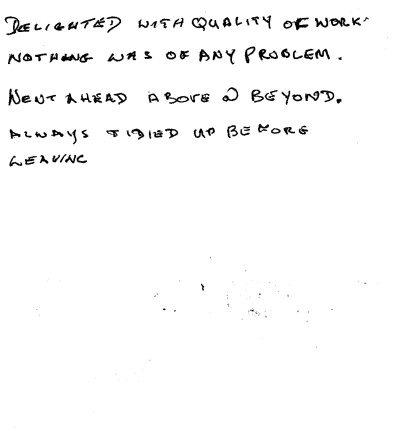 DELIGHTED WITH QUALITY OF WORK.
NOTHING WAS OF ANY PROBLEM.
WENT AHEAD ABOVE & BEYOND.
ALWAYS TIDIED UP BEFORE
LEAVING